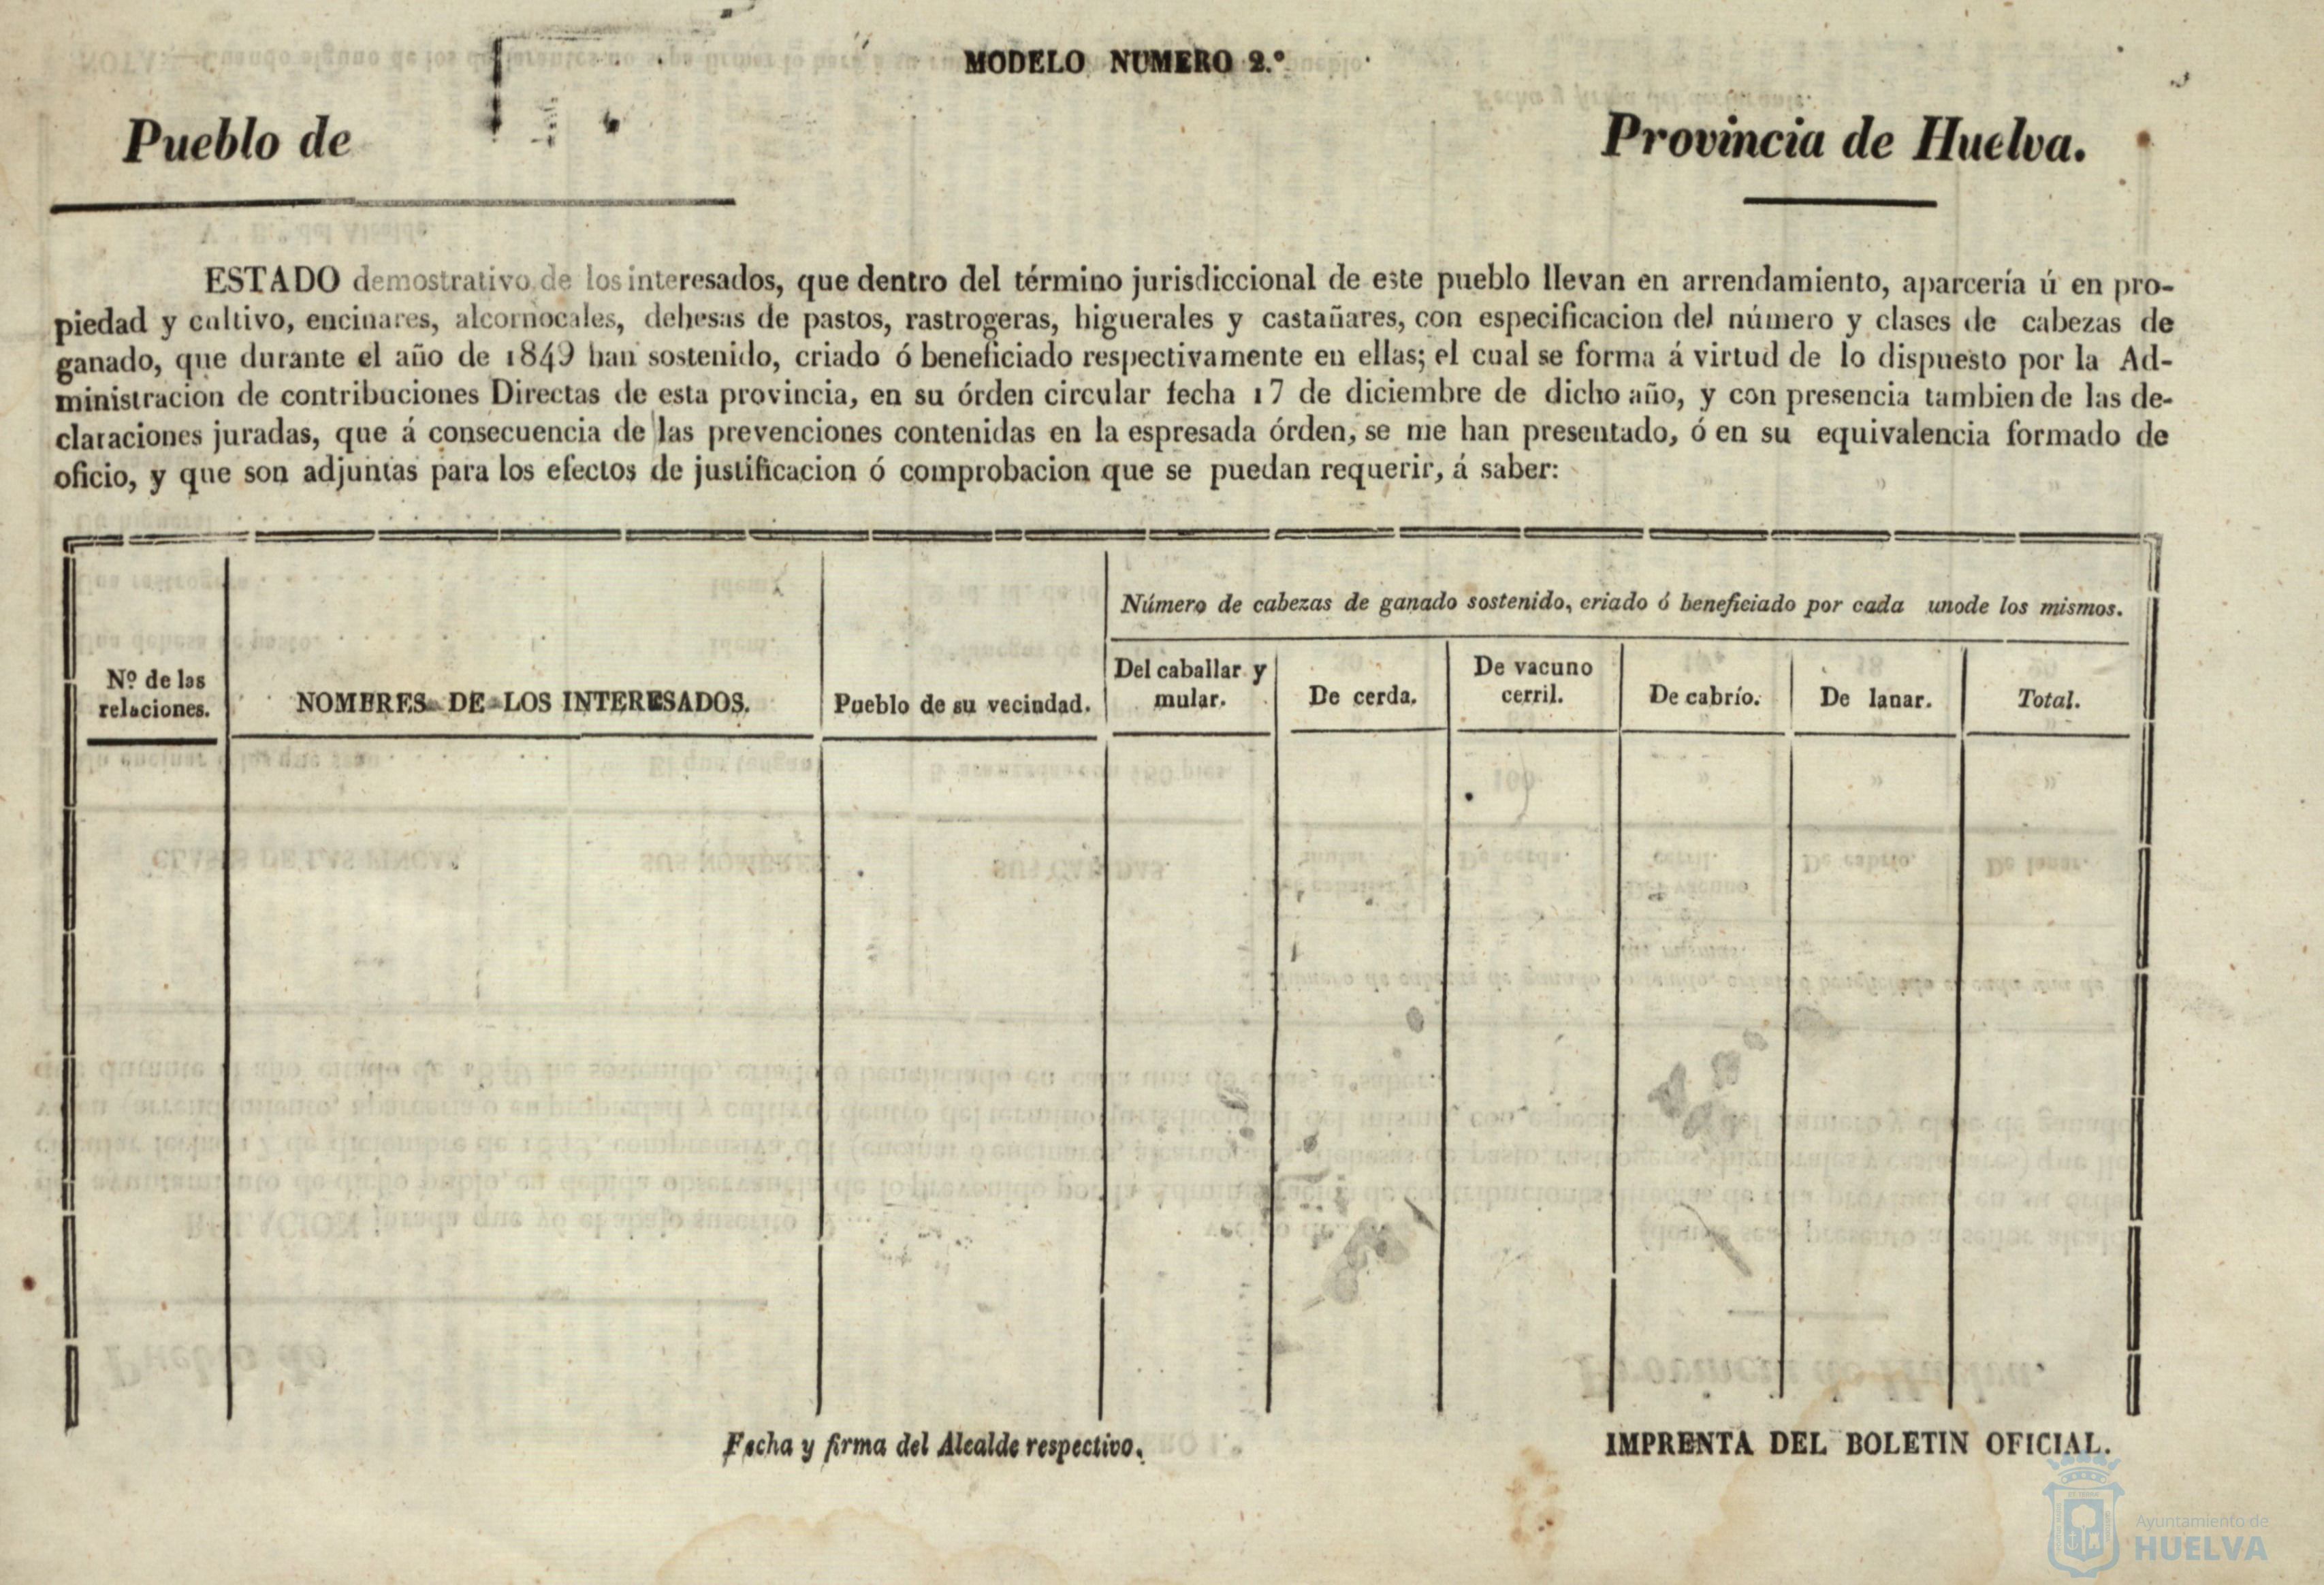 MODELO NUMERO 2.º
Pueblo de
Provincia de Huelva.
ESTADO demostrativo de los interesados, que dentro del término jurisdiccional de este pueblo llevan en arrendamiento, aparcería ú en pro-
piedad y cultivo, encinares, alcornocales, dehesas de pastos, rastrogeras, higuerales y castañares, con especificacion del número y clases de cabezas de
ganado, que durante el año de 1849 han sostenido, criado ó beneficiado respectivamente en ellas; el cual se forma á virtud de lo dispuesto por la Ad-
ministracion de contribuciones Directas de esta provincia, en su órden circular fecha 17 de diciembre de dicho año, y con presencia tambien de las de-
claraciones juradas, que á consecuencia de las prevenciones contenidas en la espresada órden, se me han presentado, ó en su equivalencia formado de
oficio, y que son adjuntas para los efectos de justificacion ó comprobacion que se puedan requerir, á saber:
Número de cabezas de ganado sostenido, criado ó beneficiado por cada unode los mismos.
Nº de las
relaciones.
NOMBRES DE LOS INTERESADOS.
Pueblo de su vecindad.
Del caballar y
mular.
De cerda.
De vacuno
cerril.
De cabrío.
De lanar.
Total.
Fecha y firma del Alcalde respectivo.
IMPRENTA DEL BOLETIN OFICIAL.
Ayuntamiento de
HUELVA